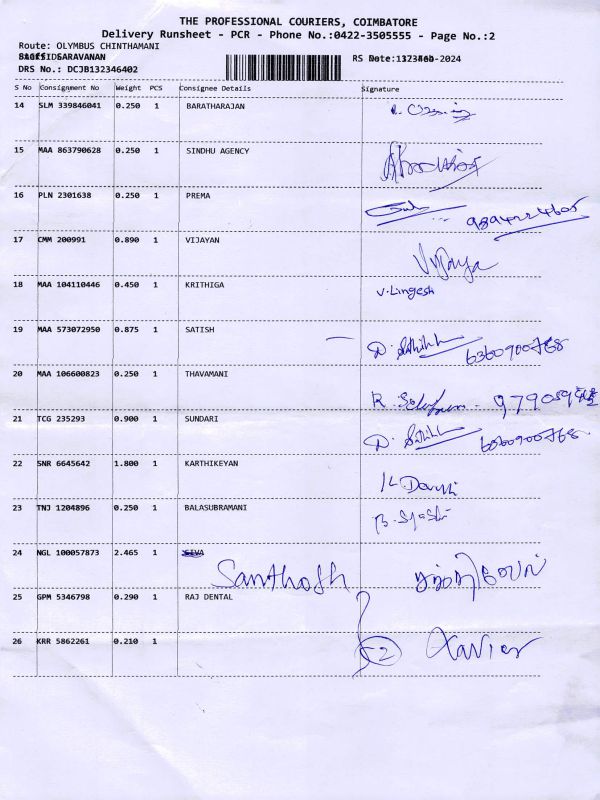 THE PROFESSIONAL COURIERS, COIMBATORE
Delivery Runsheet - PCR - Phone No.:0422-3505555 - Page No.:2
Route: OLYMBUS CHINTHAMANI
SARAVANAN
RS Date: -2024
DRS No.: DCJB132346402
S No Consignment No Weight PCS Consignee Details Signature
14 SLM 339846041 0.250 1 BARATHARAJAN
15 MAA 863790628 0.250 1 SINDHU AGENCY
16 PLN 2301638 0.250 1 PREMA
17 CMM 200991 0.890 1 VIJAYAN Vijaya
18 MAA 104110446 0.450 1 KRITHIGA V. Lingesh
19 MAA 573072950 0.875 1 SATISH D. Sathikk 6360900768
20 MAA 106600823 0.250 1 THAVAMANI R.
21 TCG 235293 0.900 1 SUNDARI D. Sathikk 6360900768
22 SNR 6645642 1.800 1 KARTHIKEYAN
23 TNJ 1204896 0.250 1 BALASUBRAMANI
24 NGL 100057873 2.465 1 SIVA Santhosh
25 GPM 5346798 0.290 1 RAJ DENTAL
26 KRR 5862261 0.210 1 52 Xavier